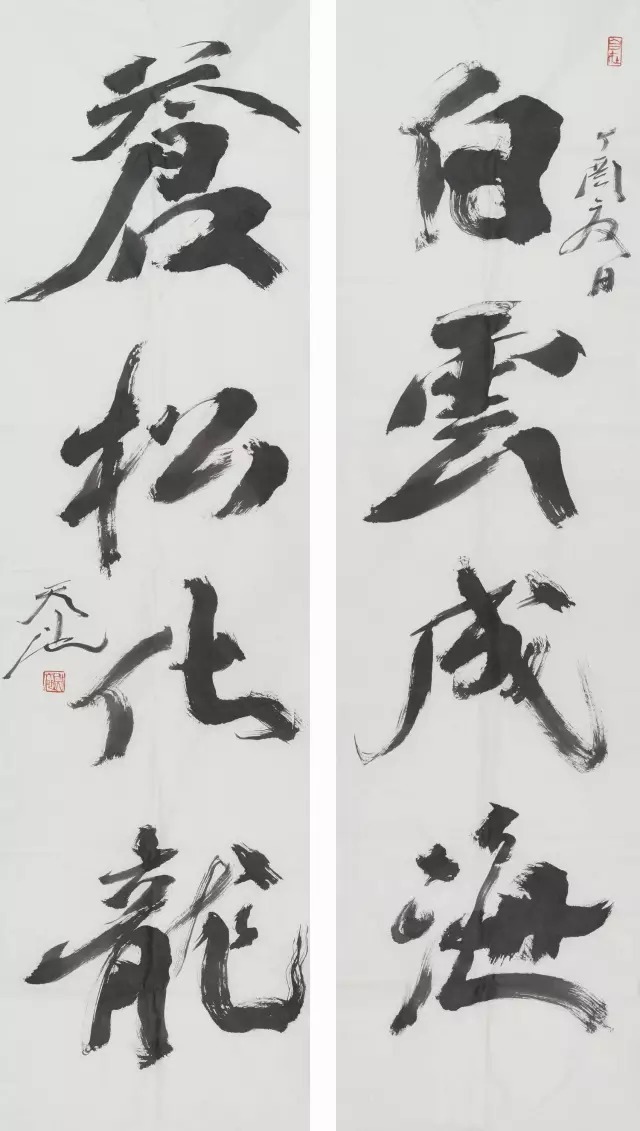 丁酉夏日
白雲成海
蒼松化龍